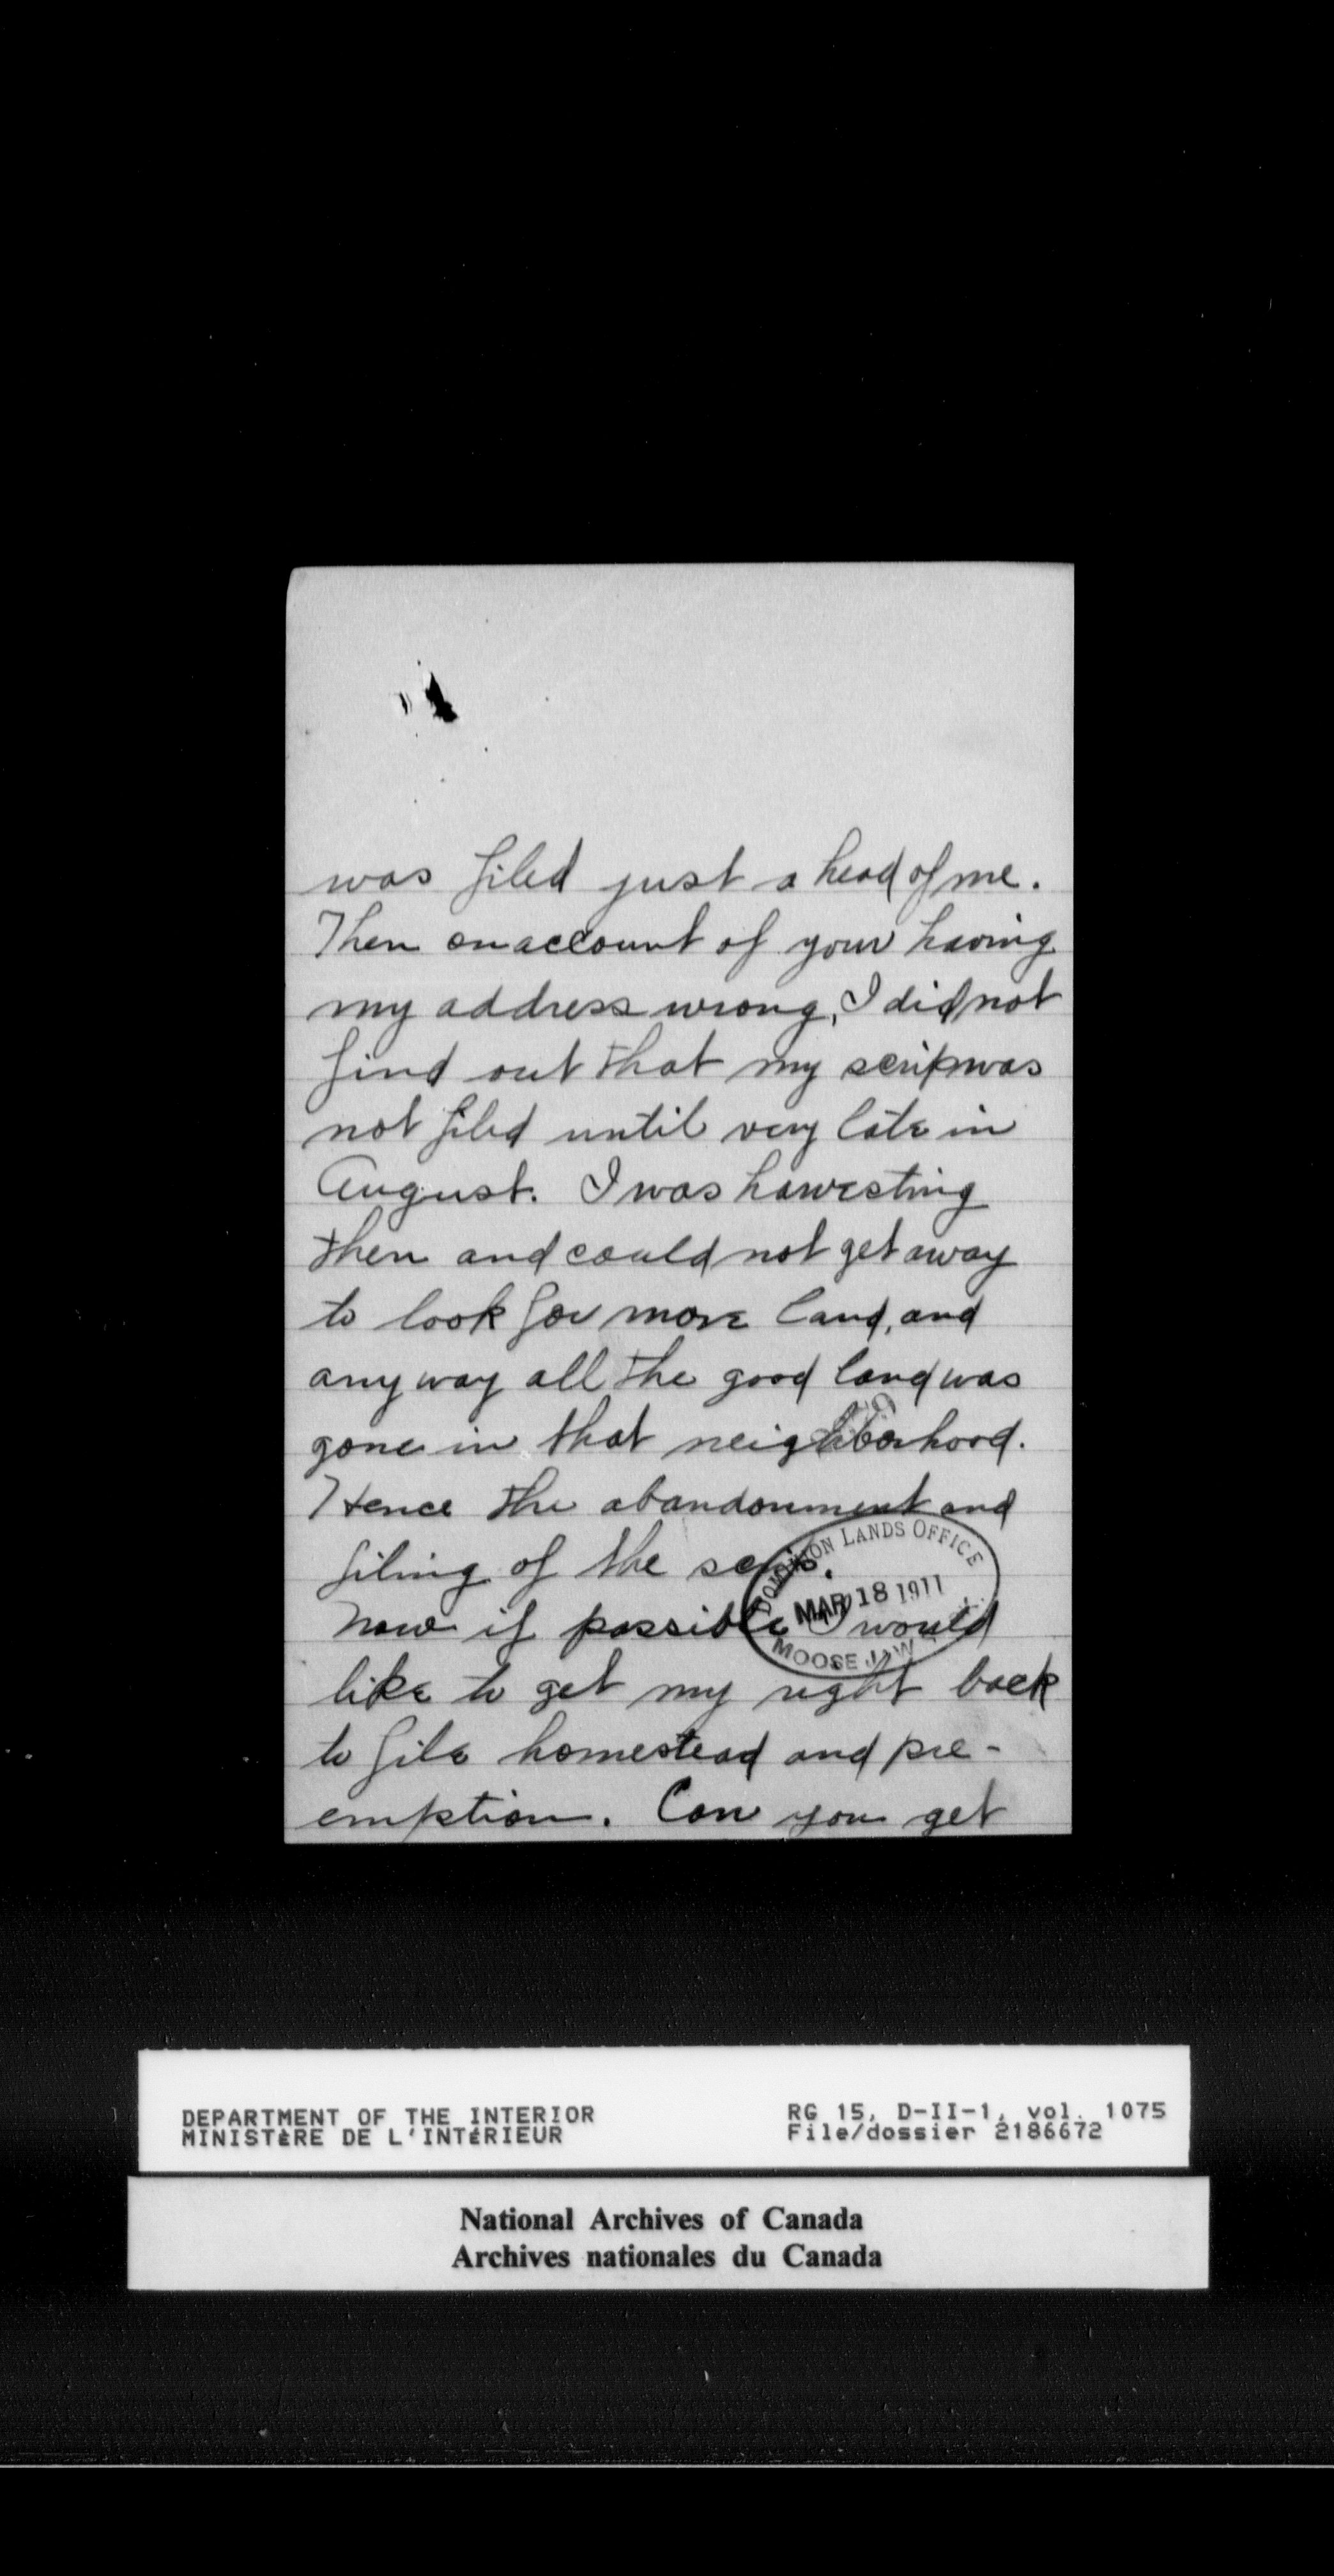 was filed just a head of me.
Then on account of your having
my address wrong, I did not
find out that my scrip was
not filed until very late in
August. I was harvesting
then and could not get away
to look for more land, and
any way all the good land was
gone in that neighborhood.
Hence the abandonment and
filing of the scrip.
DOMINION LANDS OFFICE
MAR 18 1911
MOOSE JAW
Now if possible I would
like to get my right back
to file homestead and pre-
emption. Can you get
DEPARTMENT OF THE INTERIOR
MINISTÈRE DE L'INTÉRIEUR
RG 15, D-II-1, vol. 1075
File/dossier 2186672
National Archives of Canada
Archives nationales du Canada